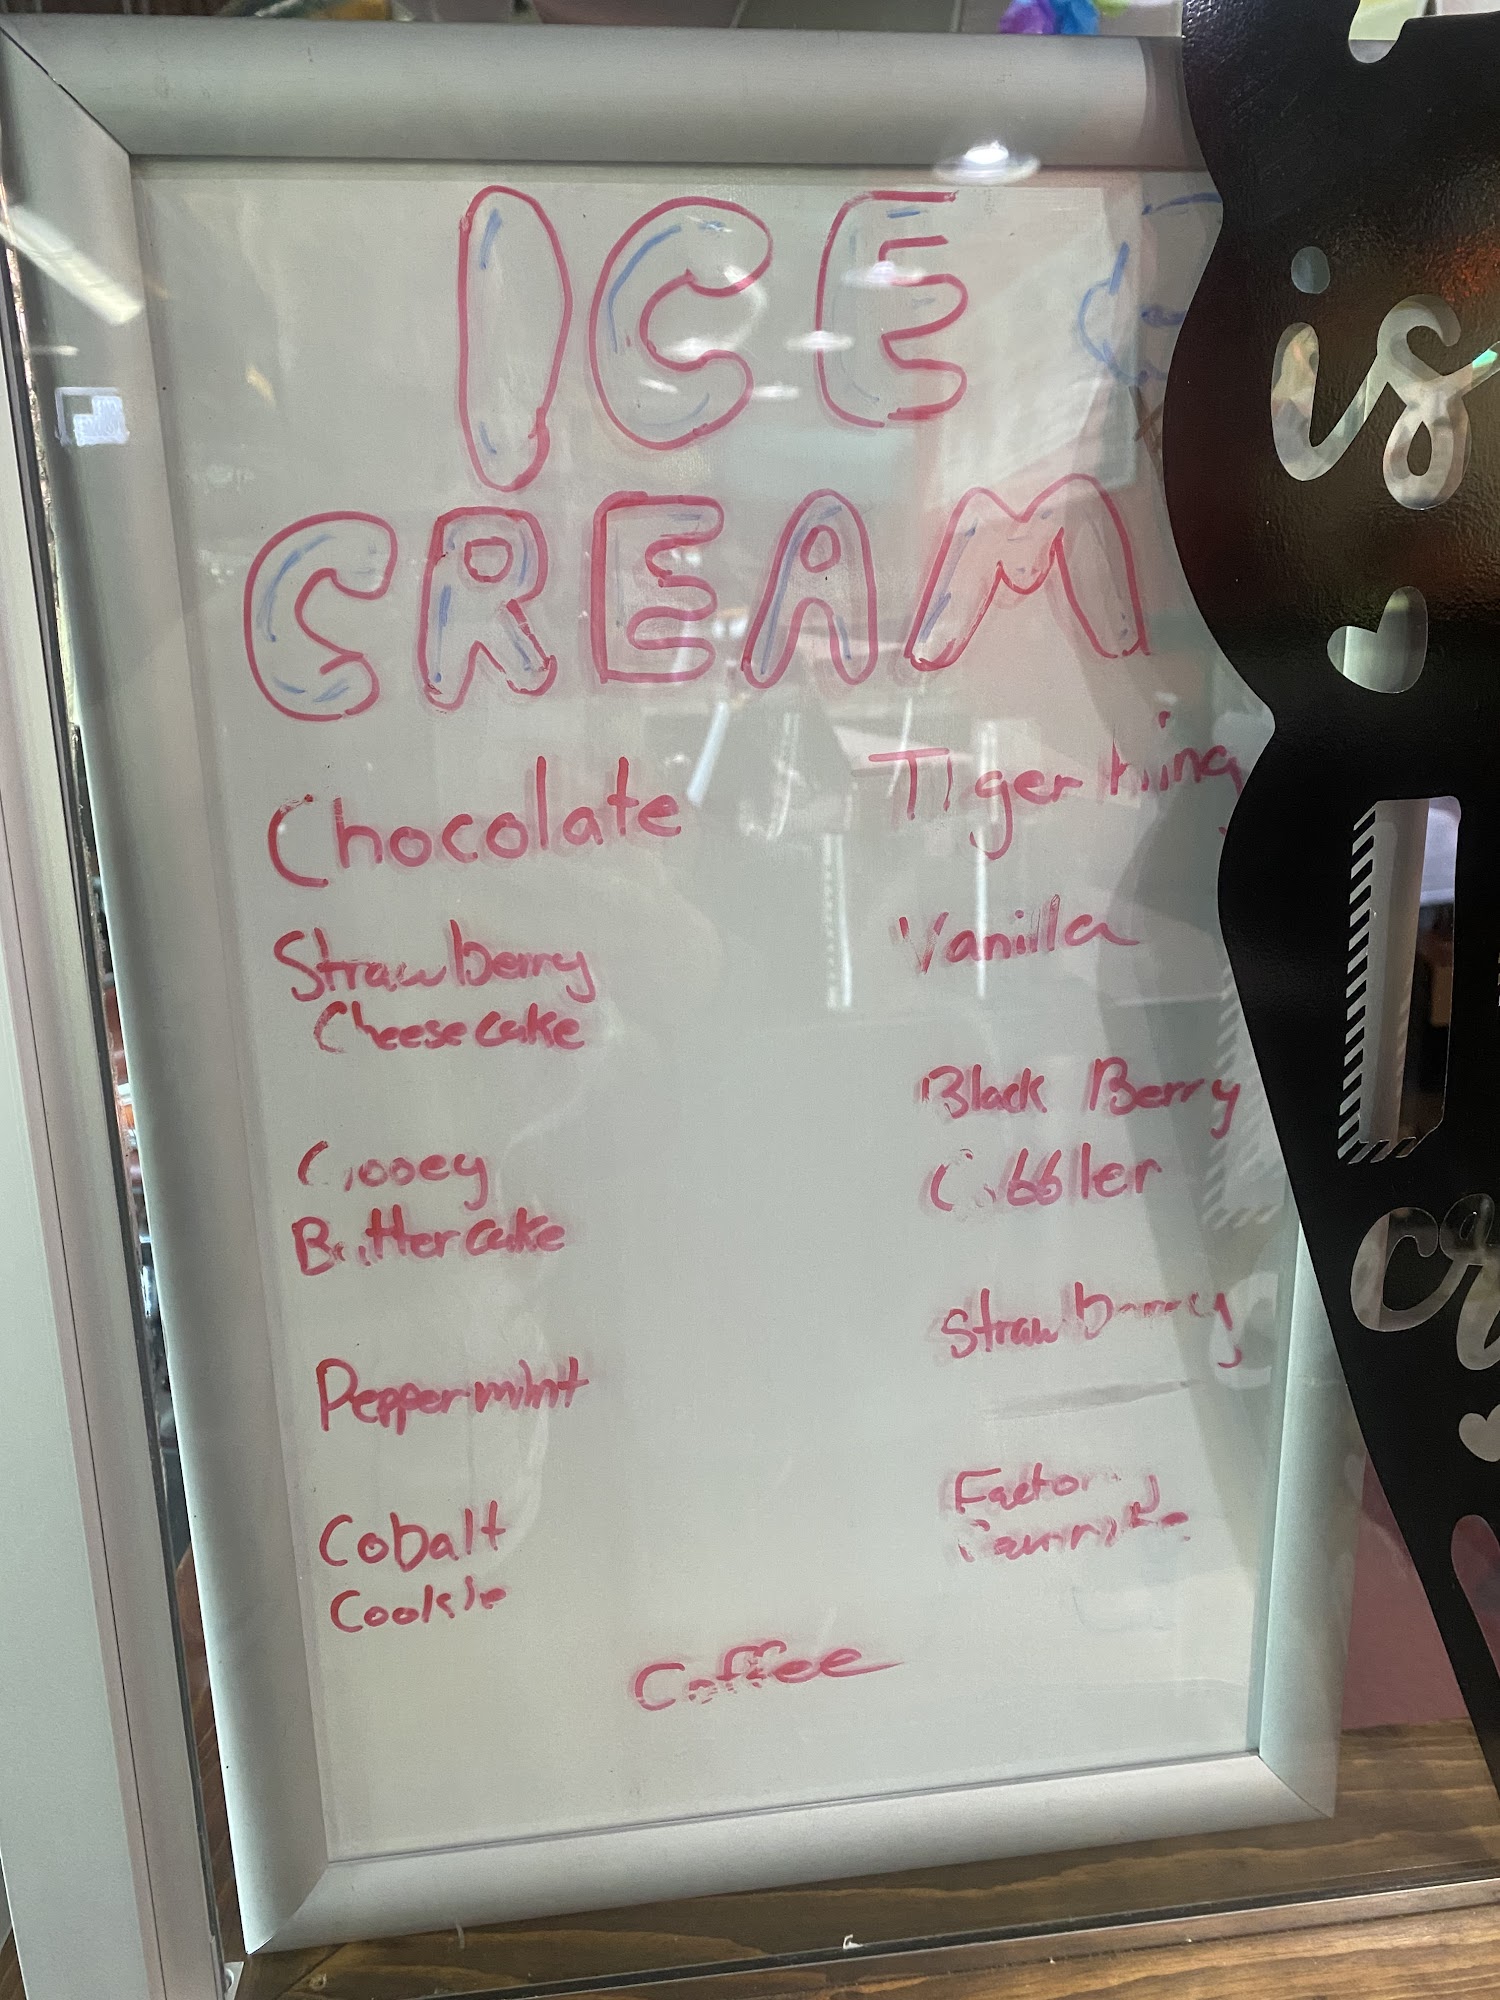 ICE
CREAM
Chocolate
Strawberry
Cheesecake
Gooey
Buttercake
Peppermint
Cobalt
Cookie
Tiger King
Vanilla
Black Berry
Cobbler
Strawberry
Factory
Coffee
is